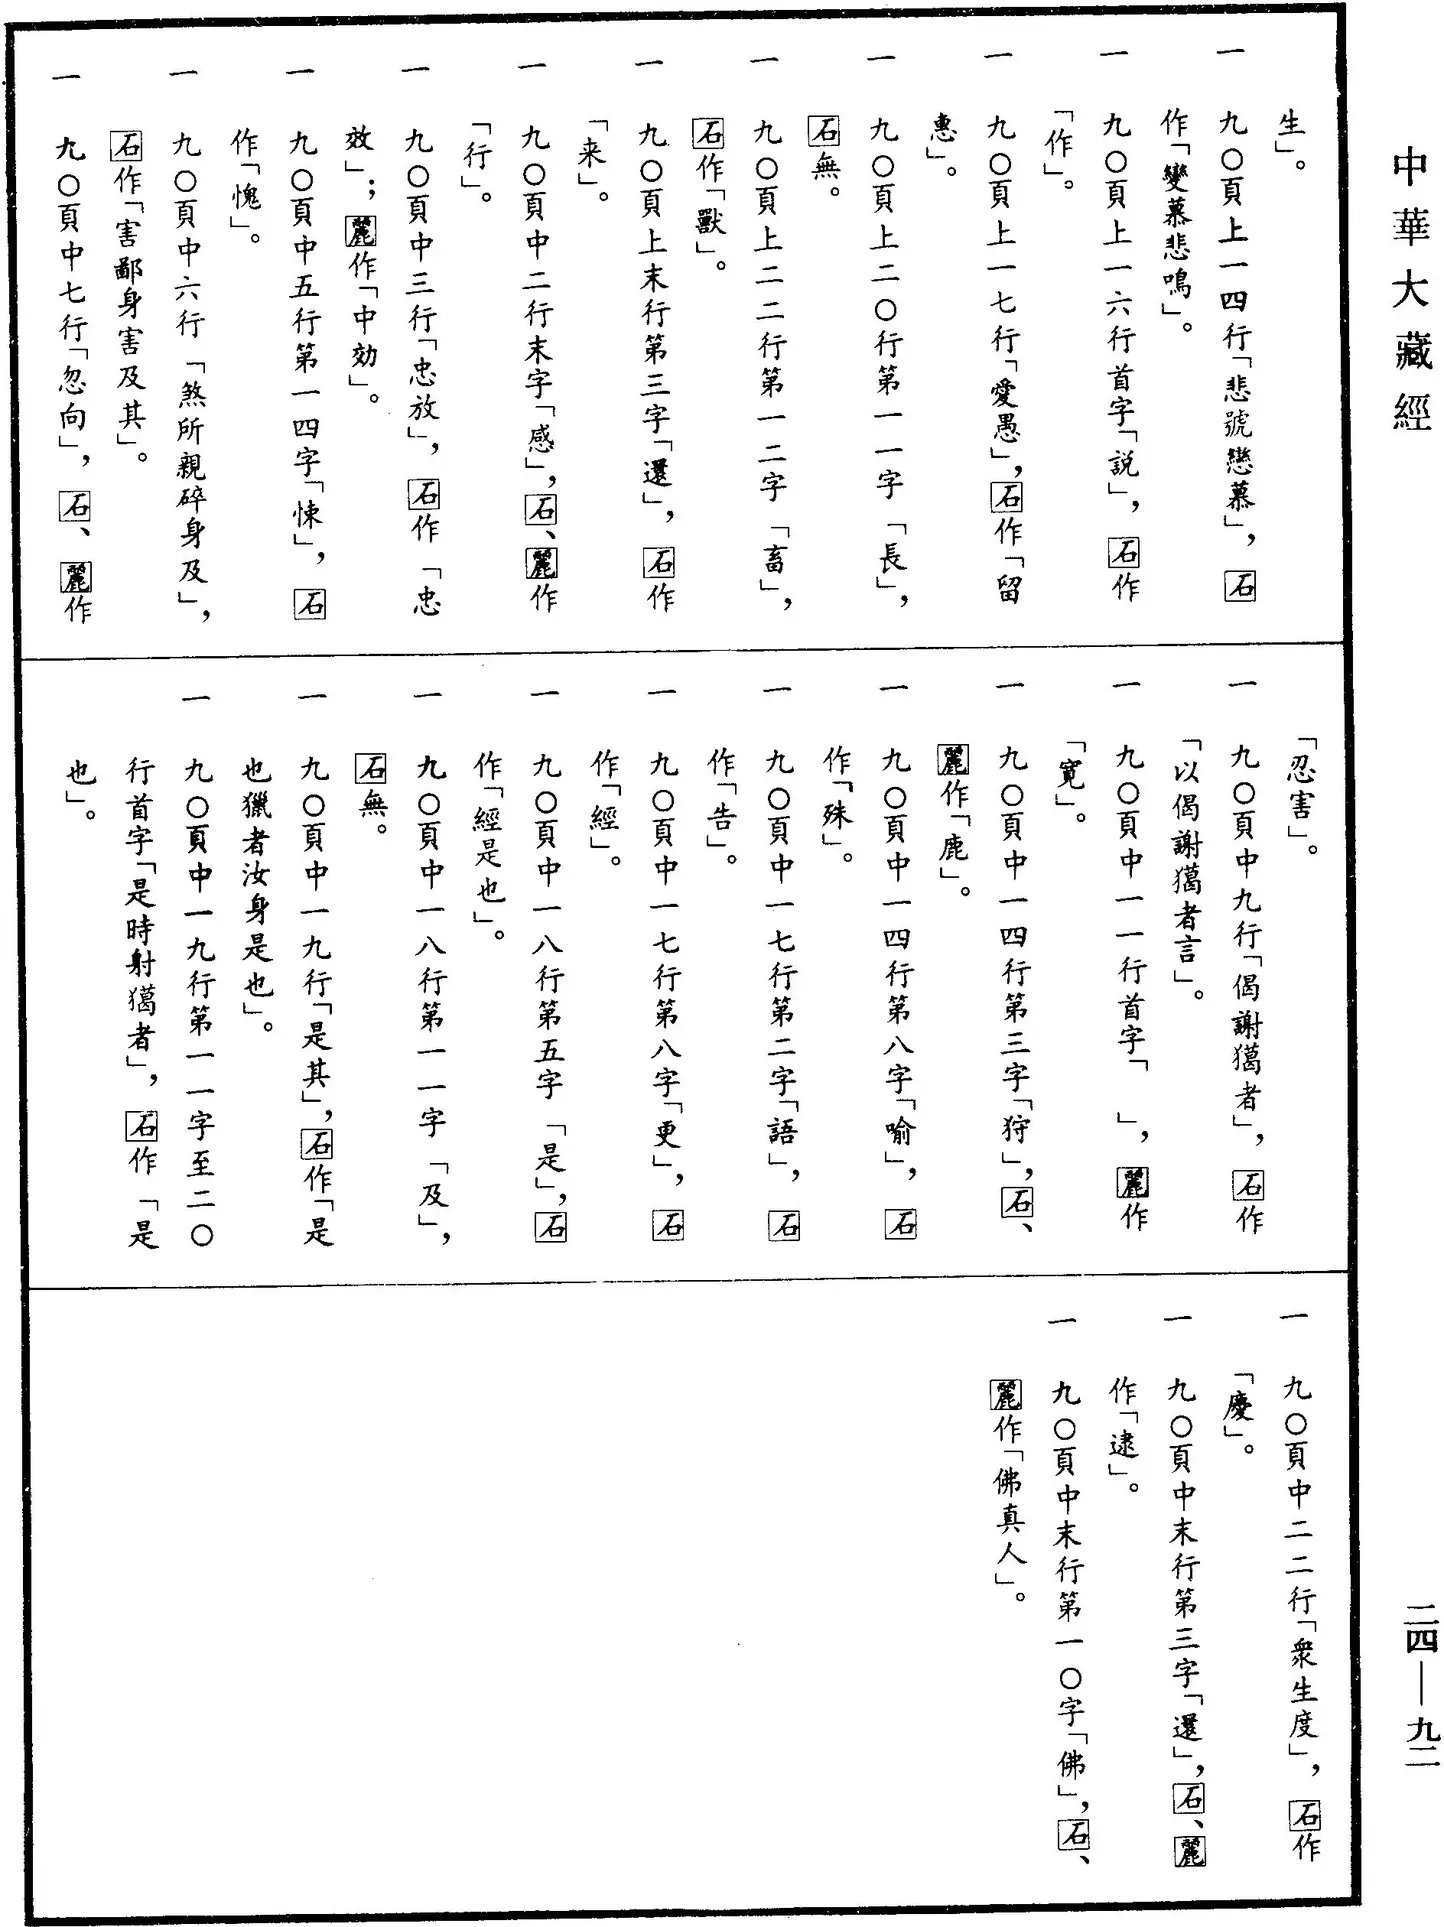 中華大藏經
生」。
一 九〇頁上一四行「悲號戀慕」，石
作「孌慕悲鳴」。
一 九〇頁上一六行首字「説」，石作
「作」。
一 九〇頁上一七行「愛愚」，石作「留
惠」。
一 九〇頁上二〇行第一一字「長」，
石無。
一 九〇頁上二二行第一二字「畜」，
石作「獸」。
一 九〇頁上末行第三字「還」，石作
「来」。
一 九〇頁中二行末字「感」，石、麗作
「行」。
一 九〇頁中三行「忠放」，石作「忠
效」；麗作「中効」。
一 九〇頁中五行第一四字「悚」，石
作「愧」。
一 九〇頁中六行「煞所親碎身及」，
石作「害鄙身害及其」。
一 九〇頁中七行「忽向」，石、麗作
「忍害」。
一 九〇頁中九行「偈謝獦者」，石作
「以偈謝獦者言」。
一 九〇頁中一一行首字「　」，麗作
「寛」。
一 九〇頁中一四行第三字「狩」，石、
麗作「鹿」。
一 九〇頁中一四行第八字「喻」，石
作「殊」。
一 九〇頁中一七行第二字「語」，石
作「告」。
一 九〇頁中一七行第八字「更」，石
作「經」。
一 九〇頁中一八行第五字「是」，石
作「經是也」。
一 九〇頁中一八行第一一字「及」，
石無。
一 九〇頁中一九行「是其」，石作「是
也獵者汝身是也」。
一 九〇頁中一九行第一一字至二〇
行首字「是時射獦者」，石作「是
也」。
一 九〇頁中二二行「衆生度」，石作
「慶」。
一 九〇頁中末行第三字「還」，石、麗
作「逮」。
一 九〇頁中末行第一〇字「佛」，石、
麗作「佛真人」。
二四—九二